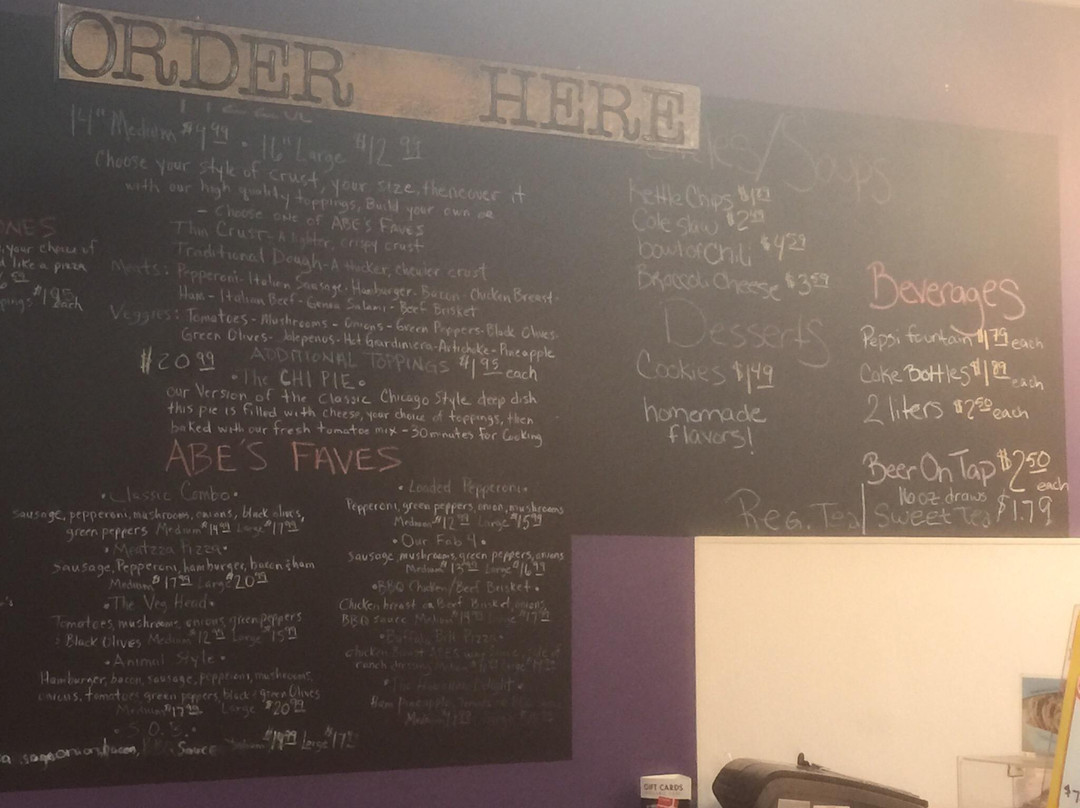 ORDER HERE
14" Medium $9.99 - 16" Large $12.99
Choose your style of crust, your size, then cover it
with our high quality toppings, Build your own or
- Choose one of ABE'S FAVES
Thin Crust - A lighter, crispy crust
Traditional Dough - A thicker, chewier crust
Meats: Pepperoni - Italian Sausage - Hamburger - Bacon - Chicken Breast -
Ham - Italian Beef - Genoa Salami - Beef Brisket
Veggies: Tomatoes - Mushrooms - Onions - Green Peppers - Black Olives -
Green Olives - Jalepenos - Hot Giardiniera - Artichoke - Pineapple
ADDITIONAL TOPPINGS $1.95 each
$20.99 • The CHI PIE •
our version of the classic Chicago Style deep dish
this pie is filled with cheese, your choice of toppings, then
baked with our fresh tomatoe mix - 30 minutes for Cooking
NES
, your choice of
d like a pizza
each
ABE'S FAVES
• Classic Combo •
sausage, pepperoni, mushrooms, onions, black olives,
green peppers Medium $14.99 Large $17.99
• Meatzza Pizza •
sausage, Pepperoni, hamburger, bacon & ham
Medium $17.99 Large $20.99
• The Veg Head •
Tomatoes, mushrooms, onions, green peppers
& Black Olives Medium $12.99 Large $15.99
• Animal Style •
Hamburger, bacon, sausage, pepperoni, mushrooms,
onions, tomatoes green peppers, black & green Olives
Medium $17.99 Large $20.99
• S.O.B. •
bacon, Sauce Large $17
• Loaded Pepperoni •
Pepperoni, green peppers, onion, mushrooms
Medium $12.99 Large $15.99
• Our Fab 4 •
sausage, mushrooms, green peppers, onions
Medium $13.99 Large $16.99
• BBQ Chicken/Beef Brisket •
Chicken breast or Beef Brisket, onions,
BBQ sauce Medium $14.99 Large $17.99
chicken breast
ranch dressing
pineapple
/Soups
Kettle Chips
Cole slaw $2
bowl of Chili $4
Broccoli Cheese $3
Desserts
Cookies $1.49
homemade
flavors!
Beverages
Pepsi fountain $1.79 each
Coke Bottles $1.89 each
2 liters $2.50 each
Beer On Tap $2.50 each
16 oz draws
Reg. Tea / Sweet Tea $1.79
GIFT CARDS